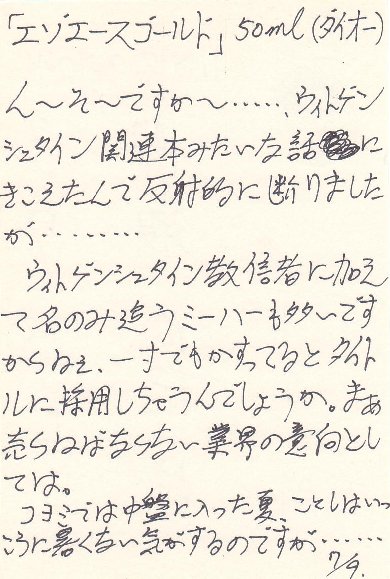 「エゾエースゴールド」50ml(ダイオー)
ん～そ～ですか～……、ウィトゲン
シュタイン関連本みたいな話に
きこえたんで反射的に断りました
が………
ウィトゲンシュタイン教信者に加え
て名のみ追うミーハーも多いです
からねぇ、一寸でもかすってるとタイト
ルに採用しちゃうんでしょうか。まぁ
売らねばならない業界の意向とし
ては。
コヨミでは中盤に入った夏、ことしはいっ
こうに暑くない気がするのですが……
7/9.